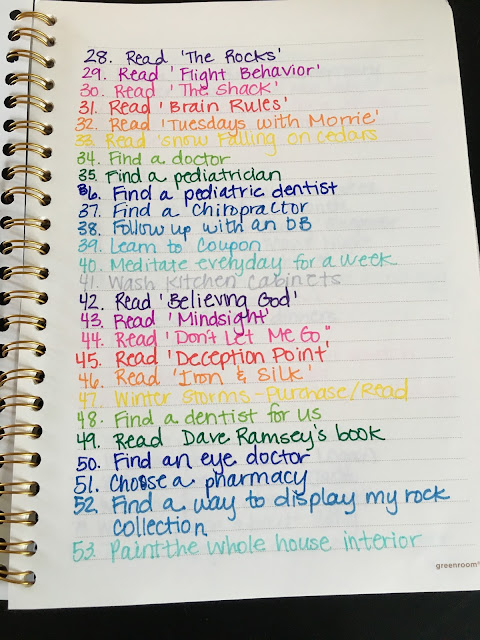 28. Read 'The Rocks'
29. Read 'Flight Behavior'
30. Read 'The Shack'
31. Read 'Brain Rules'
32. Read 'Tuesdays with Morrie'
33. Read 'Snow Falling on Cedars
34. Find a doctor
35. Find a pediatrician
36. Find a pediatric dentist
37. Find a Chiropractor
38. Follow up with an OB
39. Learn to Coupon
40. Meditate everyday for a week
41. Wash Kitchen Cabinets
42. Read 'Believing God'
43. Read 'Mindsight'
44. Read "Don't Let Me Go"
45. Read 'Deception Point'
46. Read 'Iron & Silk'
47. Winter Storms - Purchase/Read
48. Find a dentist for us
49. Read Dave Ramsey's book
50. Find an eye doctor
51. Choose a pharmacy
52. Find a way to display my rock
collection
53. Paint the whole house interior
greenroom